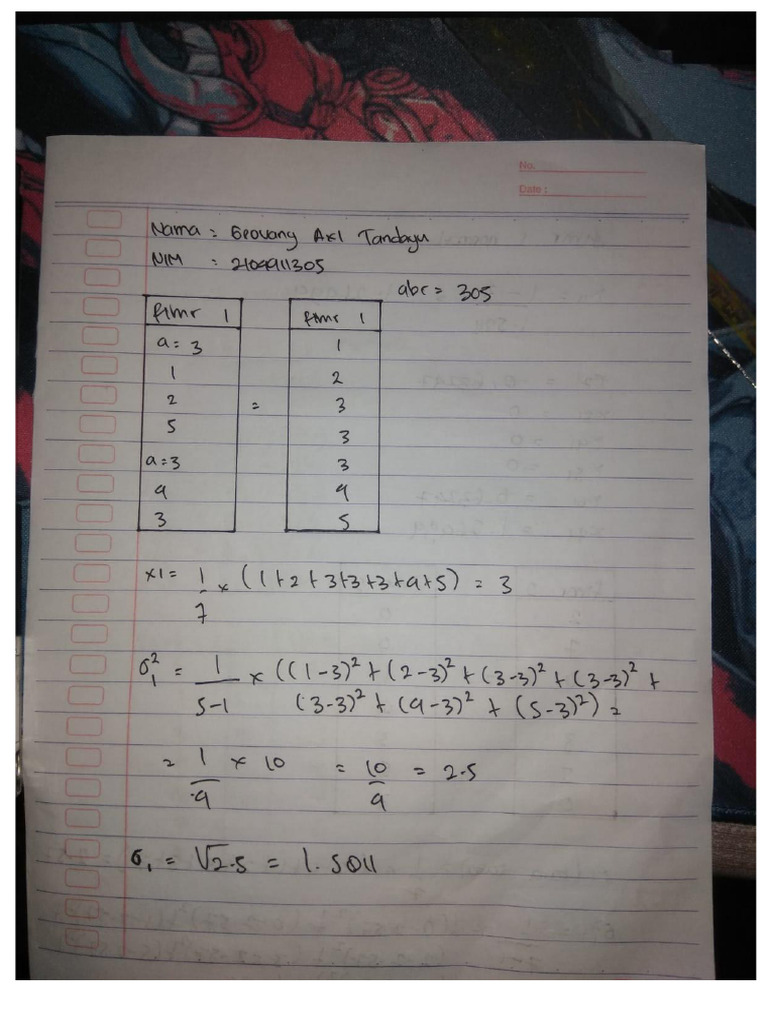 No.
Date :
Nama : Geovany Axl Tandayu
NIM : 2104911305
abc = 305
fitur 1
a = 3
1
2
5
a = 3
4
3
=
fitur 1
1
2
3
3
3
4
5
x1 = 1/7 x (1+2+3+3+3+4+5) = 3
σ₁² = 1/5-1 x ((1-3)² + (2-3)² + (3-3)² + (3-3)² +
(3-3)² + (4-3)² + (5-3)²) =
= 1/4 x 10 = 10/4 = 2.5
σ₁ = √2.5 = 1.5811